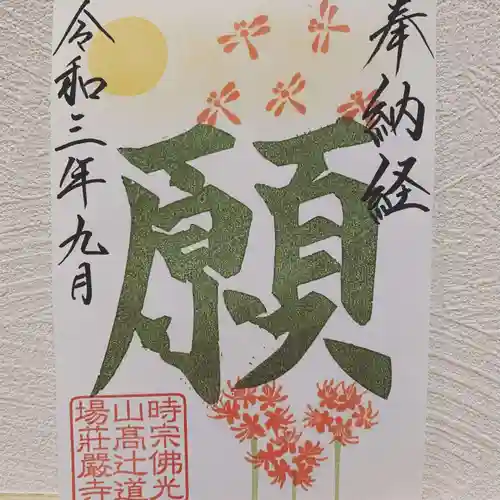 奉納経
願
令和三年九月
時宗佛光
山高辻道
場莊嚴寺